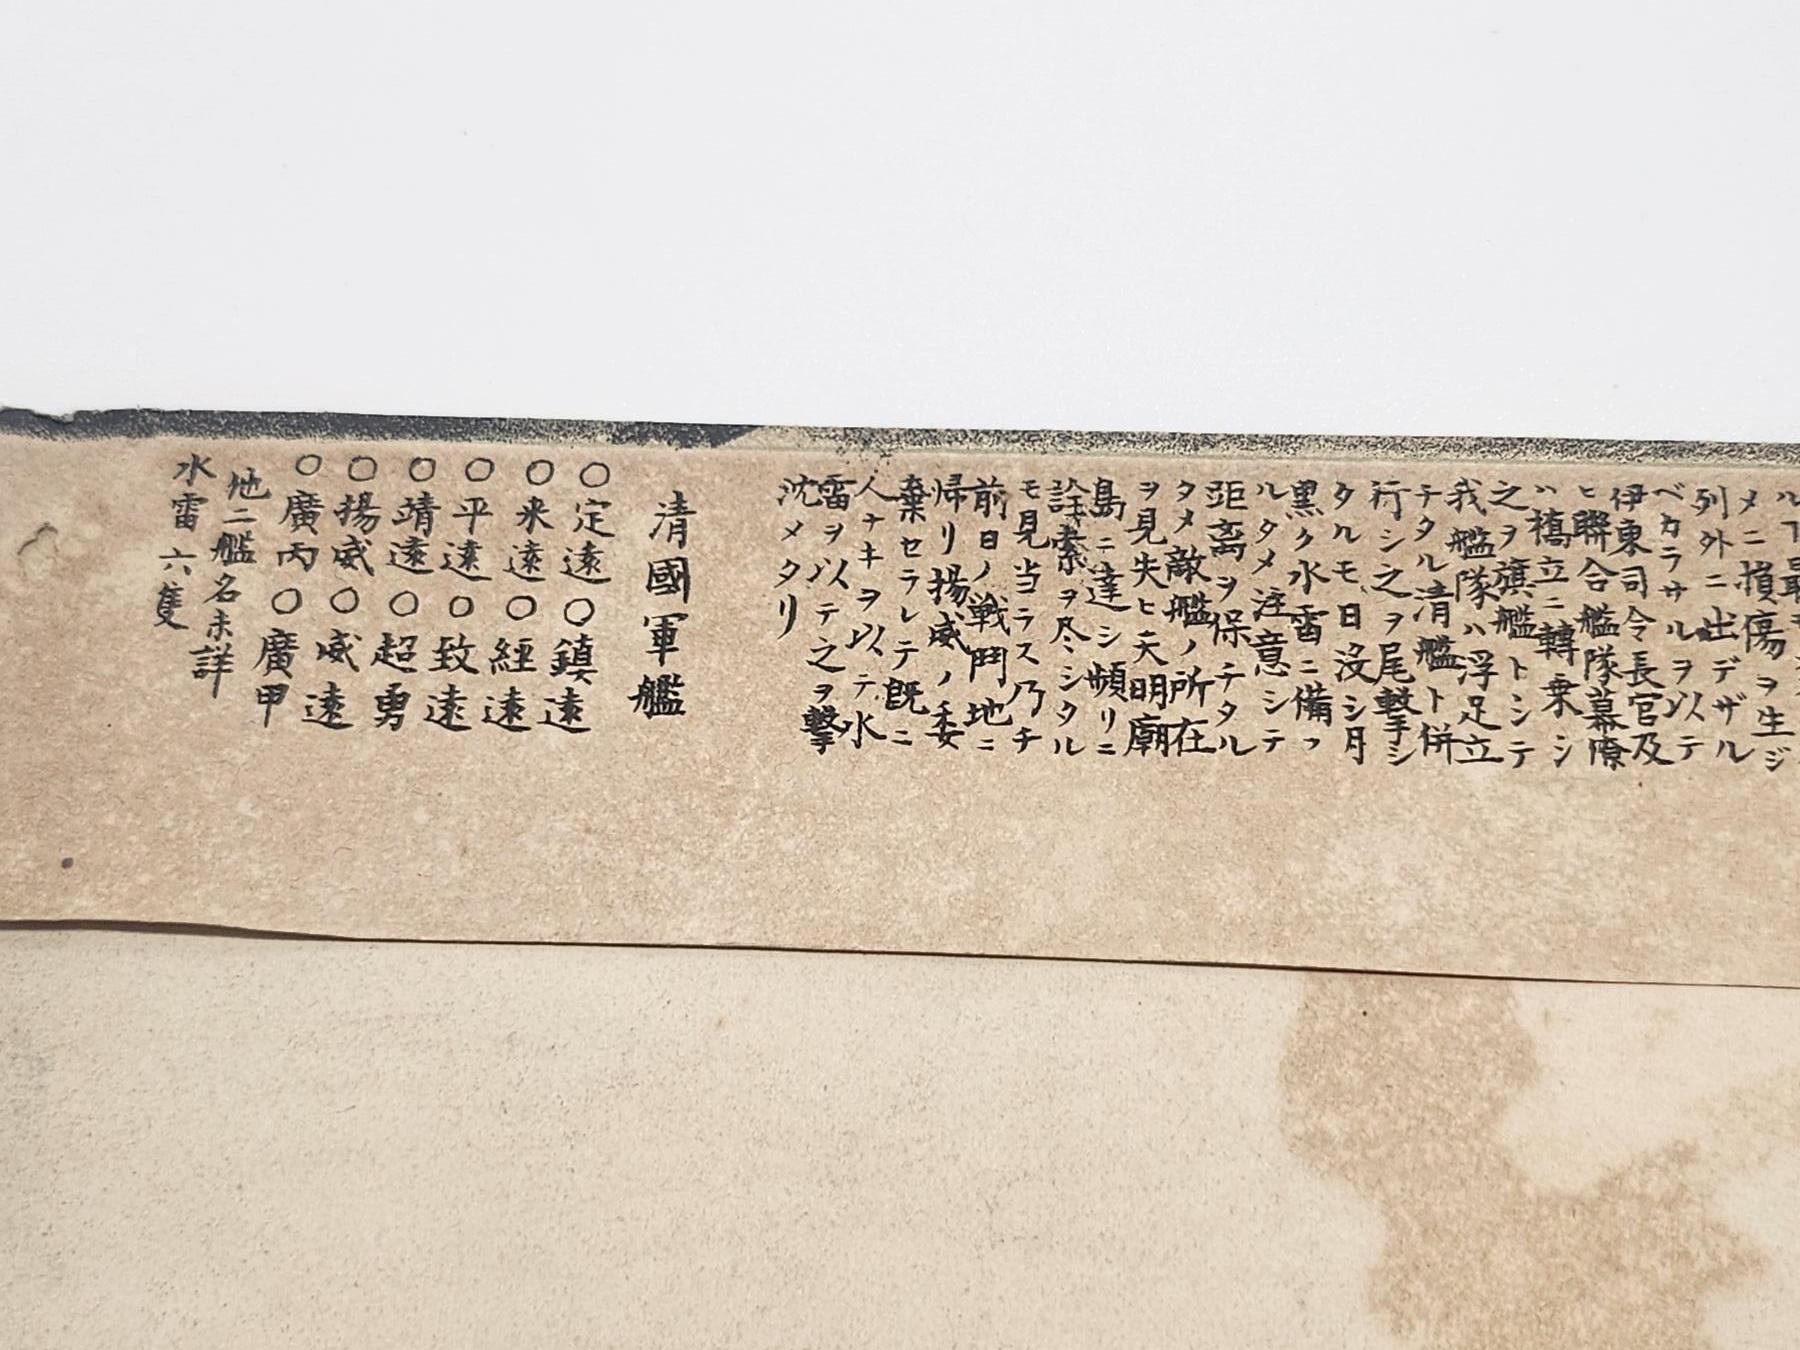 メニ損傷ヲ生ジ
列外ニ出デザル
ベカラサルヲ以テ
伊東司令長官及
ヒ聯合艦隊幕僚
ハ橋立ニ轉乗シ
之ヲ旗艦トシテ
我艦隊ハ浮足立
チタル清艦ト併
行シ之ヲ尾撃シ
タルモ日没シ月
黒ク水雷ニ備フ
ルタメ注意シテ
距离ヲ保チタル
タメ敵艦ノ所在
ヲ見失ヒ天明廟
島ニ達シ頻リニ
詮索ヲ尽シタル
モ見当ラス乃チ
前日ノ戦鬥地ニ
帰リ揚威ノ委
棄セラレテ既ニ
人ナキヲ以テ水
雷ヲ以テ之ヲ撃
沈メタリ
清國軍艦
○定遠○鎮遠
○来遠○經遠
○平遠○致遠
○靖遠○超勇
○揚威○威遠
○廣丙○廣甲
他二艦名未詳
水雷六隻